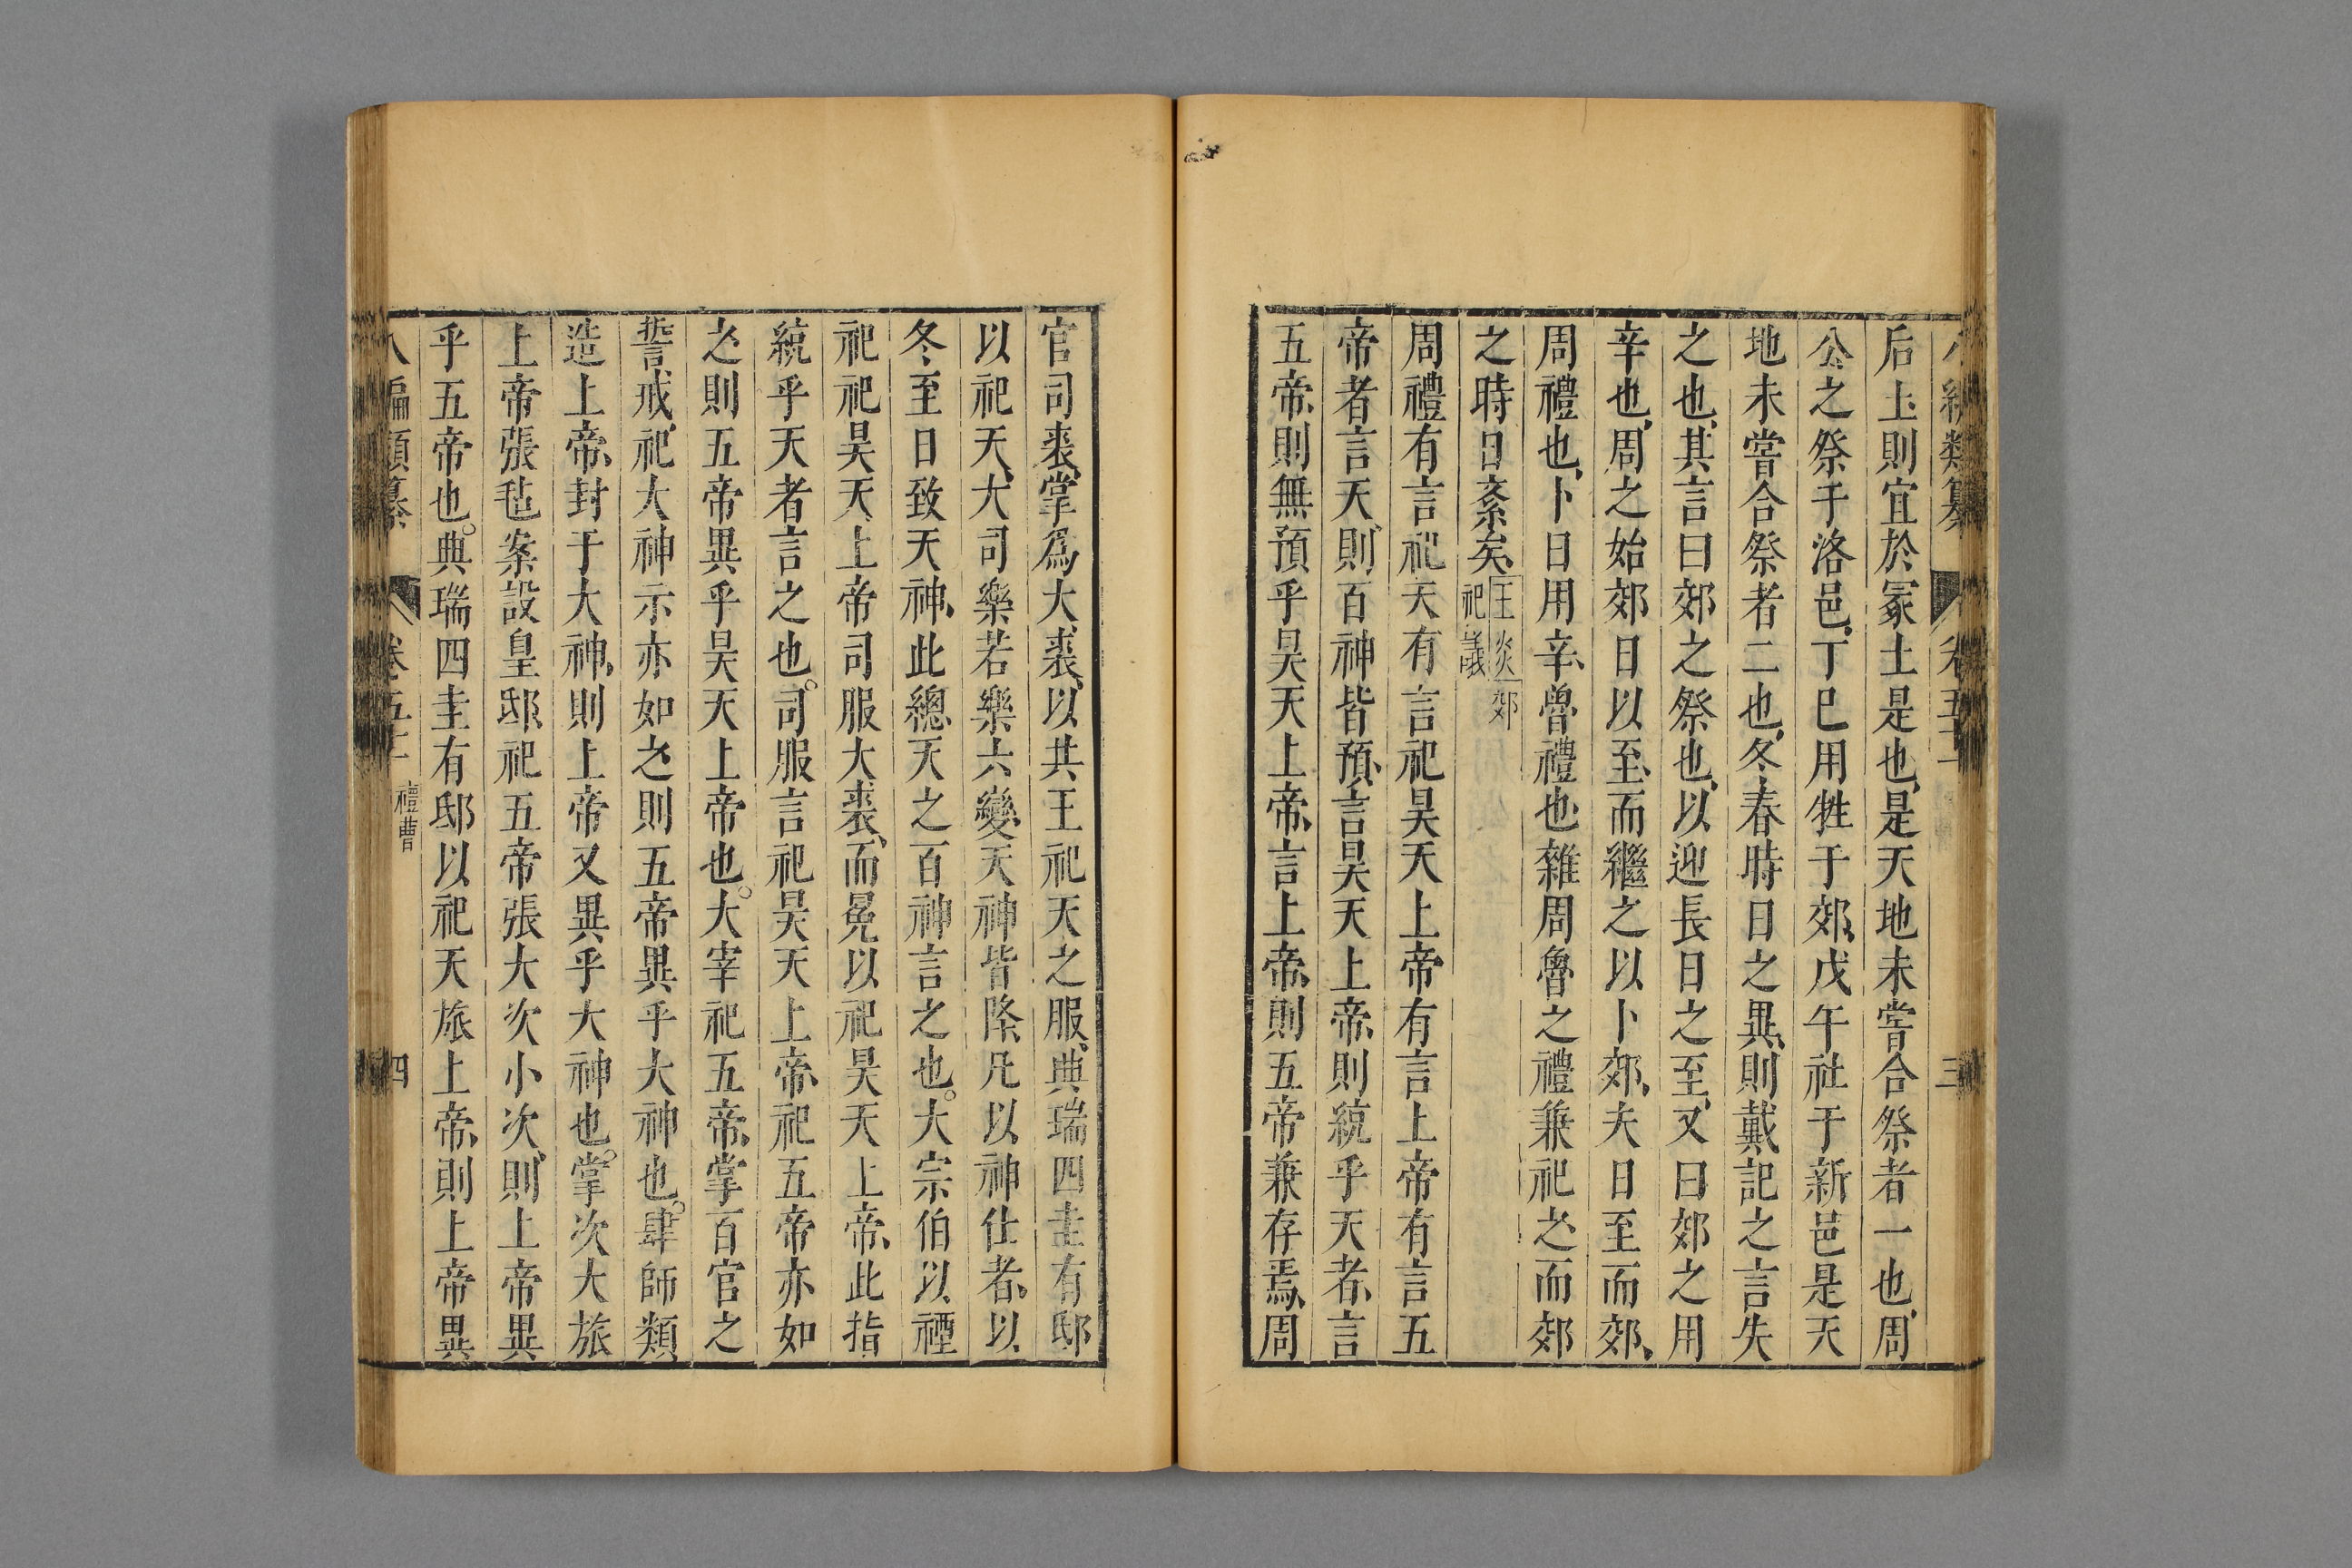 后土則宜於冢土是也是天地未嘗合祭者一也周
公之祭于洛邑丁巳用牲于郊戊午社于新邑是天
地未嘗合祭者二也冬春時日之異則戴記之言失
之也其言曰郊之祭也以迎長日之至又曰郊之用
辛也周之始郊日以至而繼之以卜郊夫日至而郊
周禮也卜日用辛魯禮也雜周魯之禮兼祀之而郊
之時日紊矣王炎郊祀議
周禮有言祀天有言祀昊天上帝有言上帝有言五
帝者言天則百神皆預言昊天上帝則統乎天者言
五帝則無預乎昊天上帝言上帝則五帝兼存焉周
官司裘掌爲大裘以共王祀天之服典瑞四圭有邸
以祀天大司樂若樂六變天神皆降凡以神仕者以
冬至日致天神此總天之百神言之也。大宗伯以禋
祀祀昊天上帝司服大裘而冕以祀昊天上帝此指
統乎天者言之也。司服言祀昊天上帝祀五帝亦如
之則五帝異乎昊天上帝也。大宰祀五帝掌百官之
誓戒祀大神示亦如之則五帝異乎大神也。肆師類
造上帝封于大神則上帝又異乎大神也。掌次大旅
上帝張氊案設皇邸祀五帝張大次小次則上帝異
乎五帝也。典瑞四圭有邸以祀天旅上帝則上帝異
八編類纂 卷五十 禮曹 四